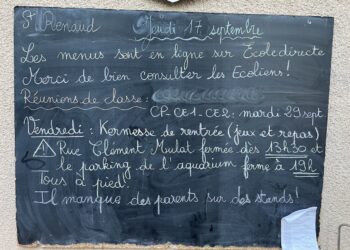 St Renaud
Jeudi 17 septembre
Les menus sont en ligne sur Ecoledirecte
Merci de bien consulter les Ecoliens!
Réunions de classe:
CP-CE1-CE2: mardi 29 sept.
Vendredi: Kermesse de rentrée (jeux et repas)
Rue Clément Mulat fermée dès 13h30 et
le parking de l'aquarium fermé à 19h
Tous à pied!
Il manque des parents sur des stands!